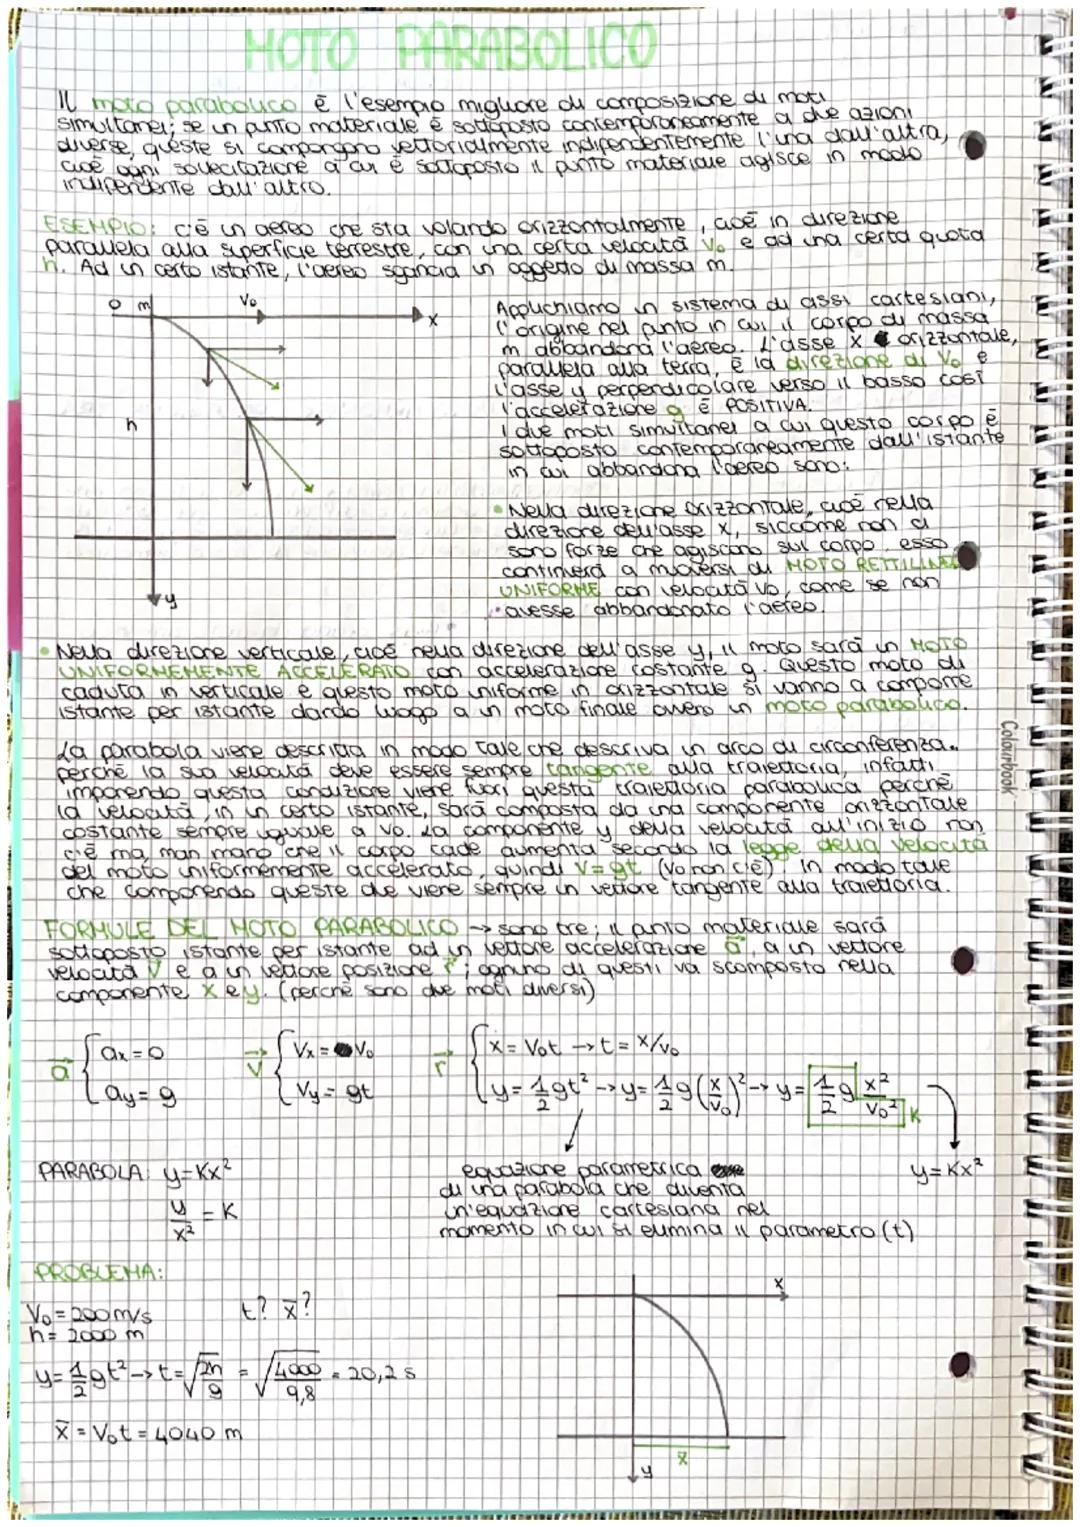 MOTO PARABOLICO
Il moto parabolico è l'esempio migliore di composizione di moti
simultanei; se un punto materiale è sottoposto contemporaneamente a due azioni
diverse, queste si compongono vettorialmente indipendentemente l'una dall'altra,
cioè ogni sollecitazione a cui è sottoposto il punto materiale agisce in modo
indipendente dall'altro.
ESEMPIO: c'è un aereo che sta volando orizzontalmente, cioè in direzione
parallela alla superficie terrestre, con una certa velocità V₀ e ad una certa quota
h. Ad un certo istante, l'aereo sgancia un oggetto di massa m.
O m V₀ x
h
y
Applichiamo un sistema di assi cartesiani,
l'origine nel punto in cui il corpo di massa
m abbandona l'aereo. L'asse x orizzontale,
parallela alla terra, è la direzione di V₀ e
l'asse y perpendicolare verso il basso così
l'accelerazione g è POSITIVA.
I due moti simultanei a cui questo corpo è
sottoposto contemporaneamente dall'istante
in cui abbandona l'aereo sono:
• Nella direzione orizzontale, cioè nella
direzione dell'asse x, siccome non ci
sono forze che agiscono sul corpo, esso
continuerà a muoversi di MOTO RETTILINEO
UNIFORME con velocità V₀, come se non
avesse abbandonato l'aereo.
• Nella direzione verticale, cioè nella direzione dell'asse y, il moto sarà un MOTO
UNIFORMEMENTE ACCELERATO con accelerazione costante g. Questo moto di
caduta in verticale e questo moto uniforme in orizzontale si vanno a comporre
istante per istante dando luogo a un moto finale ovvero un moto parabolico.
La parabola viene descritta in modo tale che descriva un arco di circonferenza..
perché la sua velocità deve essere sempre tangente alla traiettoria, infatti
imponendo questa condizione viene fuori questa traiettoria parabolica perché
la velocità, in un certo istante, sarà composta da una componente orizzontale
costante sempre uguale a V₀. La componente y della velocità all'inizio non
c'è ma, man mano che il corpo cade aumenta secondo la legge della velocità
del moto uniformemente accelerato, quindi V=gt (V₀ non c'è). In modo tale
che componendo queste due viene sempre un vettore tangente alla traiettoria.
FORMULE DEL MOTO PARABOLICO → sono tre; il punto materiale sarà
sottoposto istante per istante ad un vettore accelerazione a⃗, a un vettore
velocità v⃗ e a un vettore posizione r⃗; ognuno di questi va scomposto nella
componente x e y. (perché sono due moti diversi)
a⃗ { ax = 0 v⃗ { Vx = V₀ r⃗ { x = V₀t → t = x/V₀
ay = g Vy = gt y = 1/2 gt² → y = 1/2 g (x/V₀)² → y = 1/2 g x²/V₀² K
PARABOLA: y = Kx²
y/x² = K
equazione parametrica
di una parabola che diventa
un'equazione cartesiana nel
momento in cui si elimina il parametro (t)
y = Kx²
PROBLEMA:
V₀ = 200 m/s t? x̄?
h = 2000 m
y = 1/2 gt² → t = √(2h/g) = √(4000/9,8) = 20,2 s
x̄ = V₀t = 4040 m
x
x̄
y
Colourbook